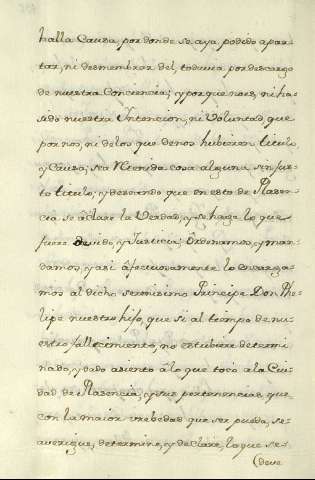 halla Causa por donde se aya podido apar-
tar, ni desmembrar del, todavia por descargo
de nuestra Conciencia; y porque no es, ni ha
sido nuestra Intencion, ni Voluntad, que
por nos, ni de los que de nos hubieren titulo,
y Causa; sea Retenida cosa alguna sin jus-
to titulo; y deseando que en esto de Plasen-
cia se aclare la Verdad, y se haga lo que
fuere devido, y Justicia; Ordenamos, y man-
damos, y asi afectuosamente lo encarga-
mos al dicho serenisimo Principe Don Phe-
lipe nuestro hijo, que si al tiempo de nu-
estro fallecimiento, no estubiere determi-
nado, y dado asiento â lo que toca a la Ciu-
dad de Plasencia, y sus pertenencias, que
con la maior vrebedad que ser pueda, se
averigue, determine, y declare, lo que se
(deve